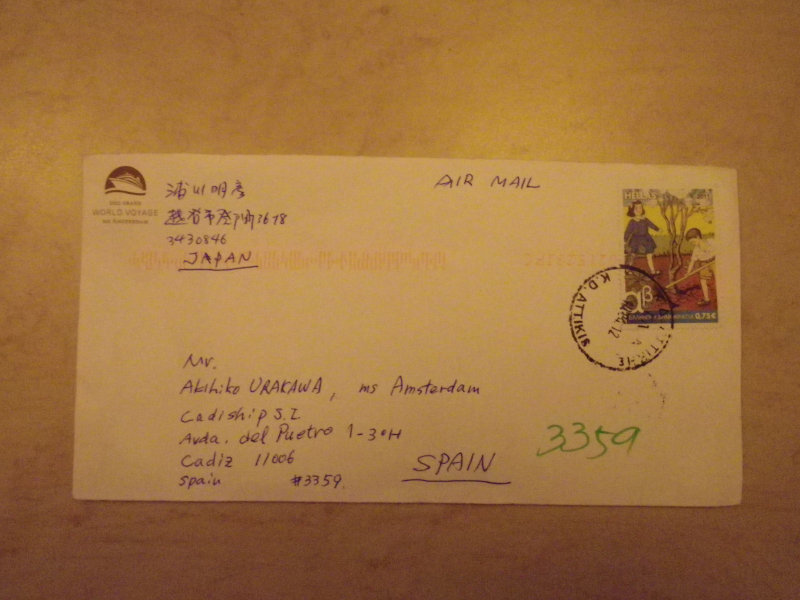 WORLD VOYAGE
浦川明彦
越谷市登戸町36-18
3430846
JAPAN
AIR MAIL
HELLAS
αβ
0,75€
K.D. ATTIKIS
Mr.
Akihiko URAKAWA, ms Amsterdam
Cadiship S.L
Avda. del Puetro 1-3ºH
Cadiz 11006
SPAIN
Spain #3359.
3359